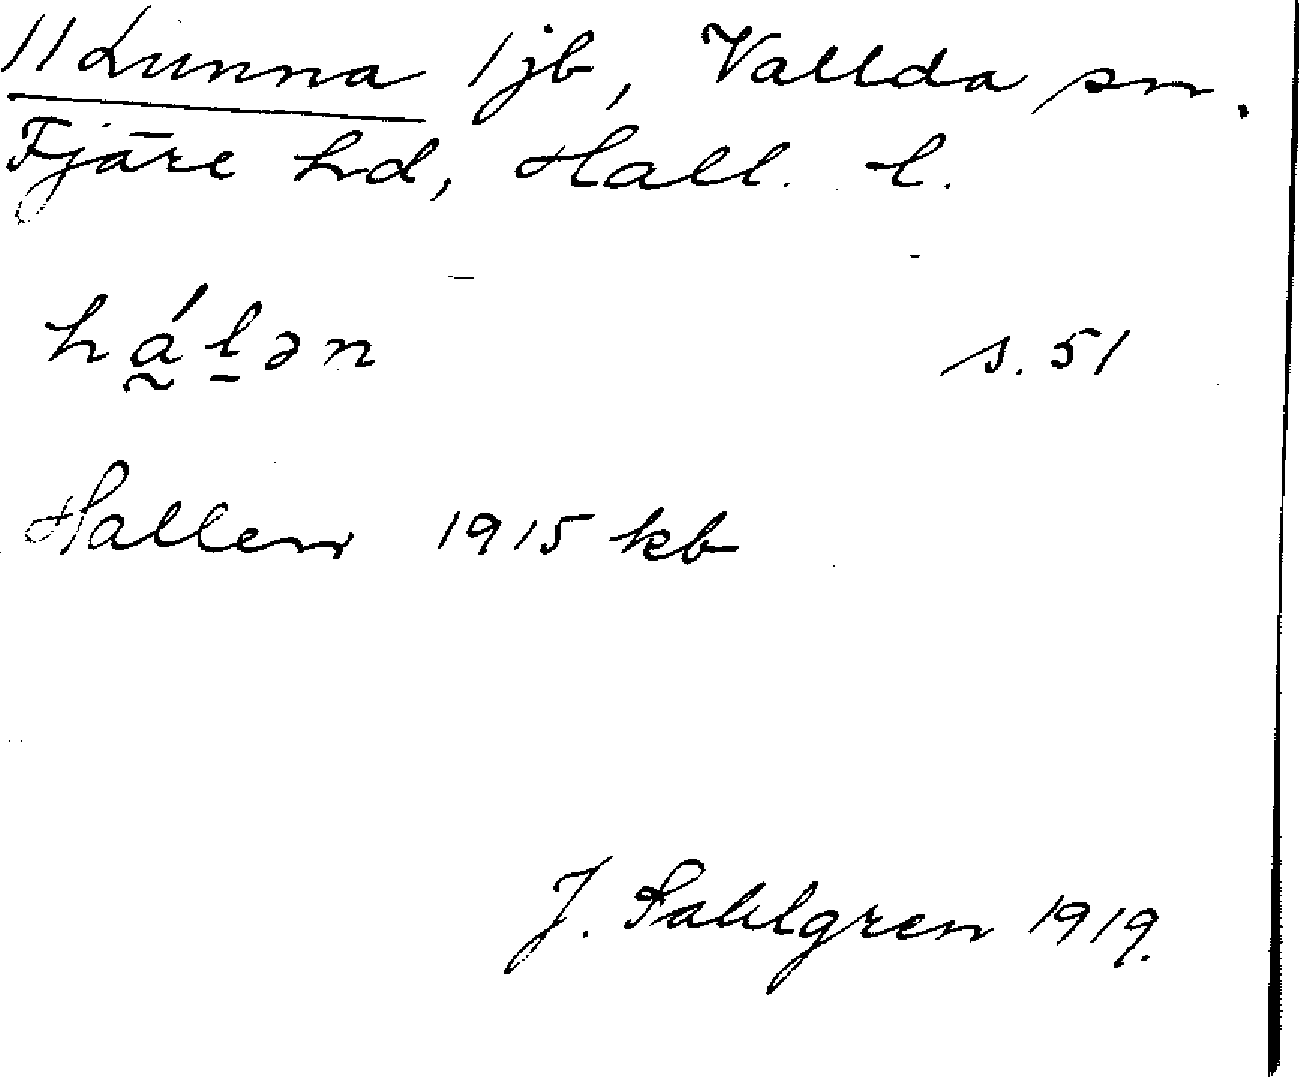 11 Lunna 1 jb, Vallda sn.
Fjäre hd, Hall. l.
há̰l̠ən s. 51
Hallen 1915 kb
J. Sahlgren 1919.